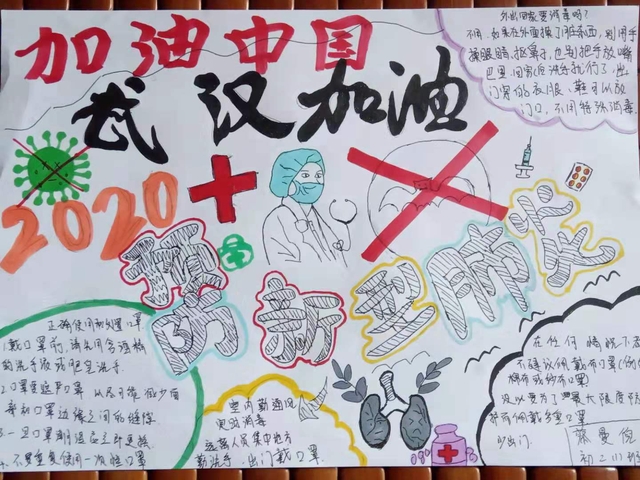 加油中国
武汉加油
2020
预防新型肺炎
外出回家要消毒吗?
不用,如果在外面摸了脏东西,别用手
揉眼睛,抠鼻子,也别把手放嘴
巴里,回家后洗手就行了,出
门穿的衣服、鞋可以放
门口,不用特殊消毒
正确使用和处置口罩
1.戴口罩前,请先用含酒精
的洗手液或肥皂洗手
2.口罩要遮严口鼻 从尽可能减少面
部和口罩边缘之间的缝隙
3.一旦口罩潮湿后立即更换
4.不要重复使用一次性口罩
室内勤通风
灵活消毒
远离人员集中地方
勤洗手、出门戴口罩
在任何情况下
不建议佩戴布口罩
棉布或纱布口罩
并不用佩戴多重口罩
少出门
初二